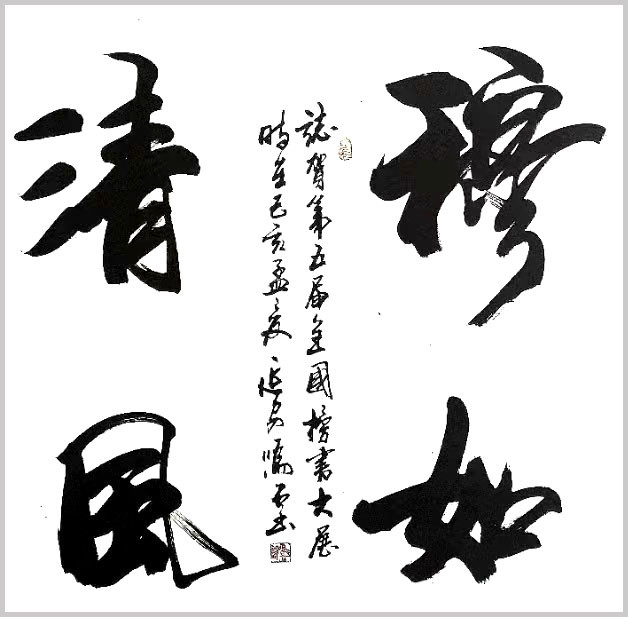 穆如
清風
誌賀第五届全國榜書大展
時在己亥孟夏延安